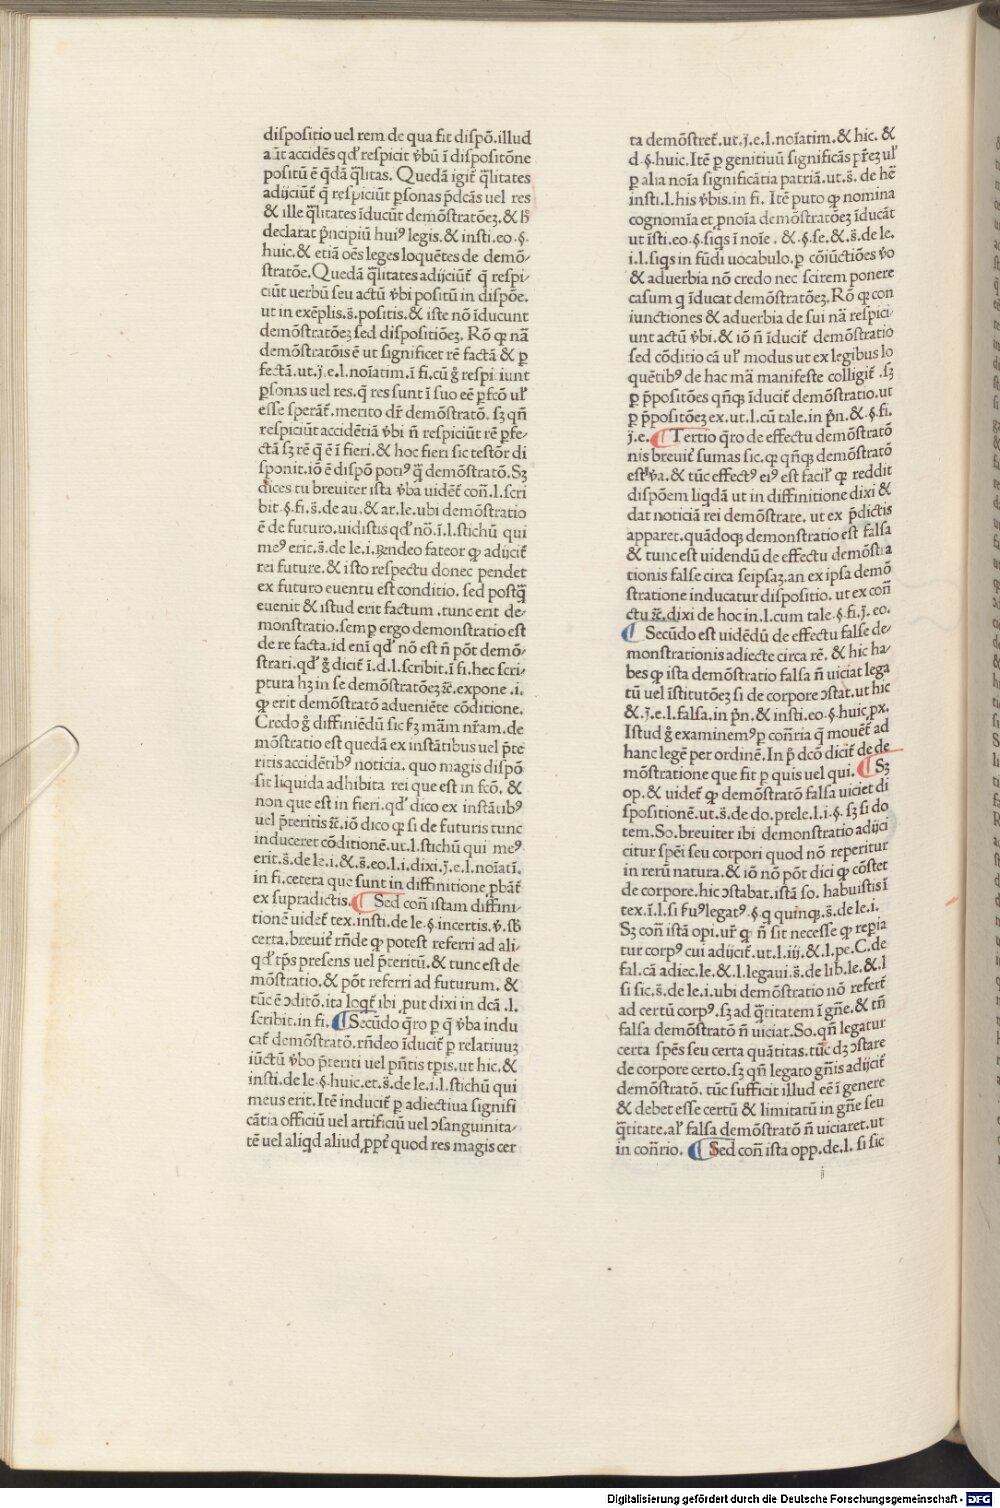 dispositio uel rem de qua fit dispō.illud
aūt accidēs qđ respicit v̄bū ī dispositōne
positū ē q̄dā q̄litas. Quedā igit̄ q̄litates
adijciūt̄ q̄ respiciūt ꝑsonas p̄dcās uel res
& ille q̄litates īducūt demōstratōeꝫ. & h̄
declarat p̄ncipiū huiꝰ legis. & insti.eo.§.
huic. & etiā oēs leges loquētes de demō⸗
stratōe. Quedā q̄litates adijciūt̄ q̄ respi⸗
ciūt uerbū seu actū v̄bi positū in dispōe.
ut in exēplis.s̄.positis. & iste nō īducunt
demōstratōeꝫ sed dispositiōeꝫ. Rō ꝙ nā
demōstratōis ē ut significet rē factā & ꝑ
fectā.ut.j̄.e.l.noīatim.ī fi.cū g̊ respiciunt
ꝑsonas uel res.q̄ res sunt ī suo eē ꝑfcō ul̓
esse sperāt̄.merito dr̄ demōstratō. sꝫ qn̄
respiciūt accidētiā v̄bi n̄ respiciūt rē ꝑfe⸗
ctā sꝫ rē q̄ ē ī fieri. & hoc fieri sic testōr di
sponit.iō ē dispō potiꝰ q̄ demōstratō. Sꝫ
dices tu breuiter ista v̄ba uidēt̄ con̄.l.scri
bit.§.fi.s̄.de au. & ar.le.ubi demōstratio
ē de futuro.uidistis qđ nō.ī.l.stichū qui
meꝰ erit.s̄.de le.i.Rn̄deo fateor ꝙ adijcit̄
rei future. & isto respectu donec pendet
ex futuro euentu est conditio. sed postq̄
euenit & istud erit factum .tunc erit de⸗
monstratio.semꝑ ergo demonstratio est
de re facta.id enī qđ nō est n̄ pōt demō⸗
strari.qđ g̊ dicit̄ ī.d.l.scribit.ī fi.hec scri⸗
ptura hꝫ in se demōstratōeꝫ ⁊c̄.expone .i.
ꝙ erit demōstratō adueniēte cōditione.
Credo g̊ diffiniēdū sic fꝫ mām nr̄am.de
mōstratio est quedā ex instātibus uel p̄te
ritis accidētibꝰ noticia. quo magis dispō
sit liquida adhibita rei que est in fcō. &
non que est in fieri.qđ dico ex instātibꝰ
uel p̄teritis ⁊c̄.iō dico ꝙ si de futuris tunc
induceret cōditionē.ut.l.stichū qui meꝰ
erit.s̄.de le.i. & .s̄.eo.l.i.dixi.j̄.e.l.noīatī.
in fi.cetera que sunt in diffinitione ꝓbāt̄
ex supradictis. ¶ Sed con̄ istam diffini⸗
tionē uidet̄ tex.insti.de le.§.incertis.v̄.sb̓
certa.breuit̄ rn̄de ꝙ potest referri ad ali⸗
qđ tp̄s presens uel p̄teritū. & tunc est de
mōstratio. & pōt referri ad futurum. &
tūc ē ↄditō.ita loqt̄ ibi put dixi in dcā .l.
scribit.in fi. ¶ Secūdo q̄ro ꝑ q̄ v̄ba indu
cat̄ demōstratō. rn̄deo īducit̄ ꝑ relatiuuꝫ
iūctū v̄bo p̄teriti uel pn̄tis tp̄is.ut hic. &
insti.de le.§.huic.et.s̄.de le.i.l.stichū qui
meus erit. Itē inducit̄ ꝑ adiectiua signifi
cātia officiū uel artificiū uel ↄsanguinita⸗
tē uel aliqđ aliud ꝓpt̄ quod res magis cer
ta demōstret̄.ut.j̄.e.l.noīatim. & hic. &
d.§.huic. Itē ꝑ genitiuū significās pr̄eꝫ ul̓
ꝑ alia noīa significātia patriā.ut.s̄. de hē
insti.l.his v̄bis.in fi. Itē puto ꝙ nomina
cognomīa et ꝓnoīa demōstratōeꝫ īducāt
ut īsti.eo.§.siqs ī noīe . & .§.se. & .s̄.de le.
i.l.siqs in fūdi uocabulo.ꝑ cōiūctiōes v̄o
& aduerbia nō credo nec scirem ponere
casum q īducat demōstratōeꝫ. Rō ꝙ con
iunctiones & aduerbia de sui nā respici⸗
unt actū v̄bi. & iō n̄ īducit̄ demōstratio
sed cōditio cā ul̓ modus ut ex legibus lo
quētibꝰ de hac mā manifeste colligit̄ .sꝫ
ꝑ p̄positōes qn̄qꝫ īducit̄ demōstratio.ut
ꝑ p̄positōeꝫ ex.ut.l.cū tale.in pn̄. & .§.fi.
j̄.e. ¶ Tertio q̄ro de effectu demōstratō
nis breuit̄ sumas sic.ꝙ qn̄qꝫ demōstratō
est v̄a. & tūc effectꝰ eiꝰ est facil̓ ꝙ reddit
dispōem liqdā ut in diffinitione dixi &
dat noticiā rei demōstrate. ut ex p̄dictis
apparet.quādoqꝫ demonstratio est falsa
& tunc est uidendū de effectu demōstra
tionis false circa seipsaꝫ.an ex ipsa demō
stratione inducatur dispositio. ut ex con̄
ctu ⁊c̄.dixi de hoc in.l.cum tale.§.fi.j̄. eo.
¶ Secūdo est uidēdū de effectu false de⸗
monstrationis adiecte circa rē. & hic ha⸗
bes ꝙ ista demōstratio falsa n̄ uiciat lega
tū uel īstitutōeꝫ si de corpore ↄstat.ut hic
& .j̄.e.l.falsa.in pn̄. & insti.eo.§.huic px.
Istud g̊ examinemꝰ ꝑ con̄ria q̄ mouēt̄ ad
hanc legē per ordinē. In p̄ dcō dicit̄ de de
mōstratione que fit ꝑ quis uel qui. ¶ Sꝫ
op. & uidet̄ ꝙ demōstratō falsa uiciet di
spositionē.ut.s̄.de do.prele.l.i.§. sꝫ si do
tem. So.breuiter ibi demonstratio adijci
citur spēi seu corpori quod nō reperitur
in rerū natura. & iō nō pōt dici ꝙ cōstet
de corpore.hic ↄstabat.istā so. habuistis ī
tex.ī.l.si fuꝰlegatꝰ.§.q quinqꝫ.s̄.de le.i.
Sꝫ con̄ istā opi.ur̄ ꝙ n̄ sit necesse ꝙ repia
tur corpꝰ cui adijcit̄.ut.l.iij. & .l.pe.C.de
fal.cā adiec.le. & .l.legaui.s̄.de lib.le. & .l
si sic.s̄.de le.i.ubi demōstratio nō refert̄
ad certū corpꝰ.sꝫ ad q̄titatem ī gn̄e. & tn̄
falsa demōstratō n̄ uiciat. So.qn̄ legatur
certa spēs seu certa quātitas.tūc dꝫ ↄstare
de corpore certo.sꝫ qn̄ legato gn̄is adijcit̄
demōstratō. tūc sufficit illud eē ī genere
& debet esse certū & limitatū in gn̄e seu
q̄titate.al̓ falsa demōstratō n̄ uiciaret.ut
in con̄rio. ¶ Sed con̄ ista opp.de.l. si sic
Digitalisierung gefördert durch die Deutsche Forschungsgemeinschaft - DFG